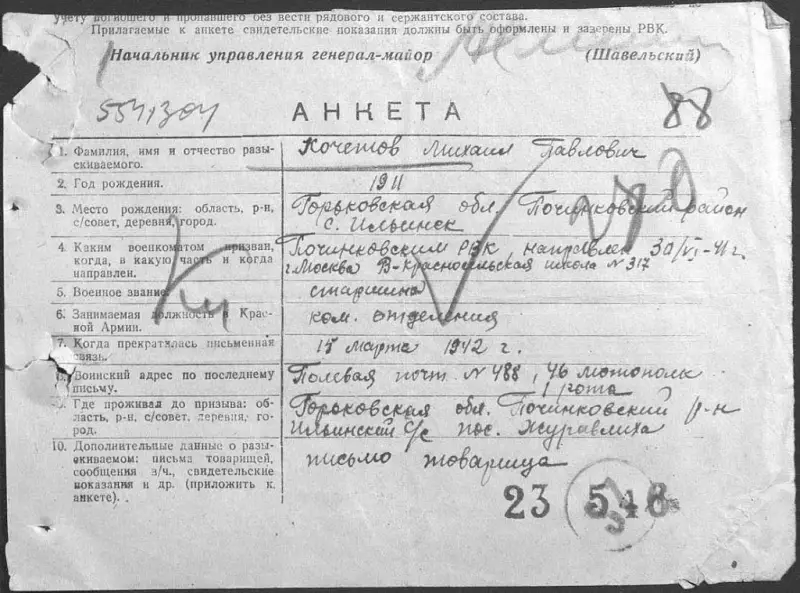 учету погибшего и пропавшего без вести рядового и сержантского состава.
Прилагаемые к анкете свидетельские показания должны быть оформлены и заверены РВК.
Начальник управления генерал-майор (Шавельский)
554304 АНКЕТА 88
1. Фамилия, имя и отчество разы-
скиваемого.
Кочетов Михаил Павлович
2. Год рождения.
1911
3. Место рождения: область, р-н,
с/совет, деревня, город.
Горьковская обл. Починковский район
с. Ильинск
4. Каким военкоматом призван,
когда, в какую часть и когда
направлен.
Починковским РВК направлен 30/VI-41г.
г. Москва В-Красносельская школа N 317
5. Военное звание.
старшина
6. Занимаемая должность в Крас-
ной Армии.
ком. отделения
7. Когда прекратилась письменная
связь.
15 марта 1942 г.
8. Воинский адрес по последнему
письму.
Полевая почт. N 488, 46 мотополк
1 рота
9. Где проживал до призыва: об-
ласть, р-н, с/совет, деревня, го-
род.
Горьковская обл. Починковский р-н
Ильинский с/с пос. Журавлиха
10. Дополнительные данные о разы-
скиваемом: письма товарищей,
сообщения в/ч., свидетельские
показания и др. (приложить к
анкете).
письмо товарища
23 546